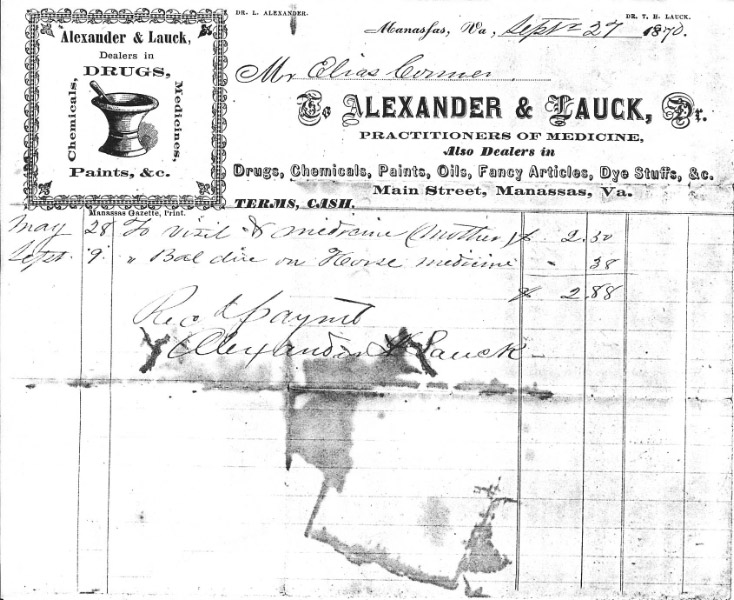 DR. L. ALEXANDER.
DR. T. H. LAUCK.
Alexander & Lauck,
Dealers in
DRUGS,
Chemicals,
Medicines.
Paints, &c.
Manassas Gazette, Print.
Manassas, Va., Septr 27 1870.
Mr Elias Conner
To ALEXANDER & LAUCK, Dr.
PRACTITIONERS OF MEDICINE,
Also Dealers in
Drugs, Chemicals, Paints, Oils, Fancy Articles, Dye Stuffs, &c.
Main Street, Manassas, Va.
TERMS, CASH.
May 28 To visit & medicine (Mother) $ 2.50
Sept. 9 " Bal due on Horse medicine 38
$ 2.88
Recd paymt
Alexander & Lauck